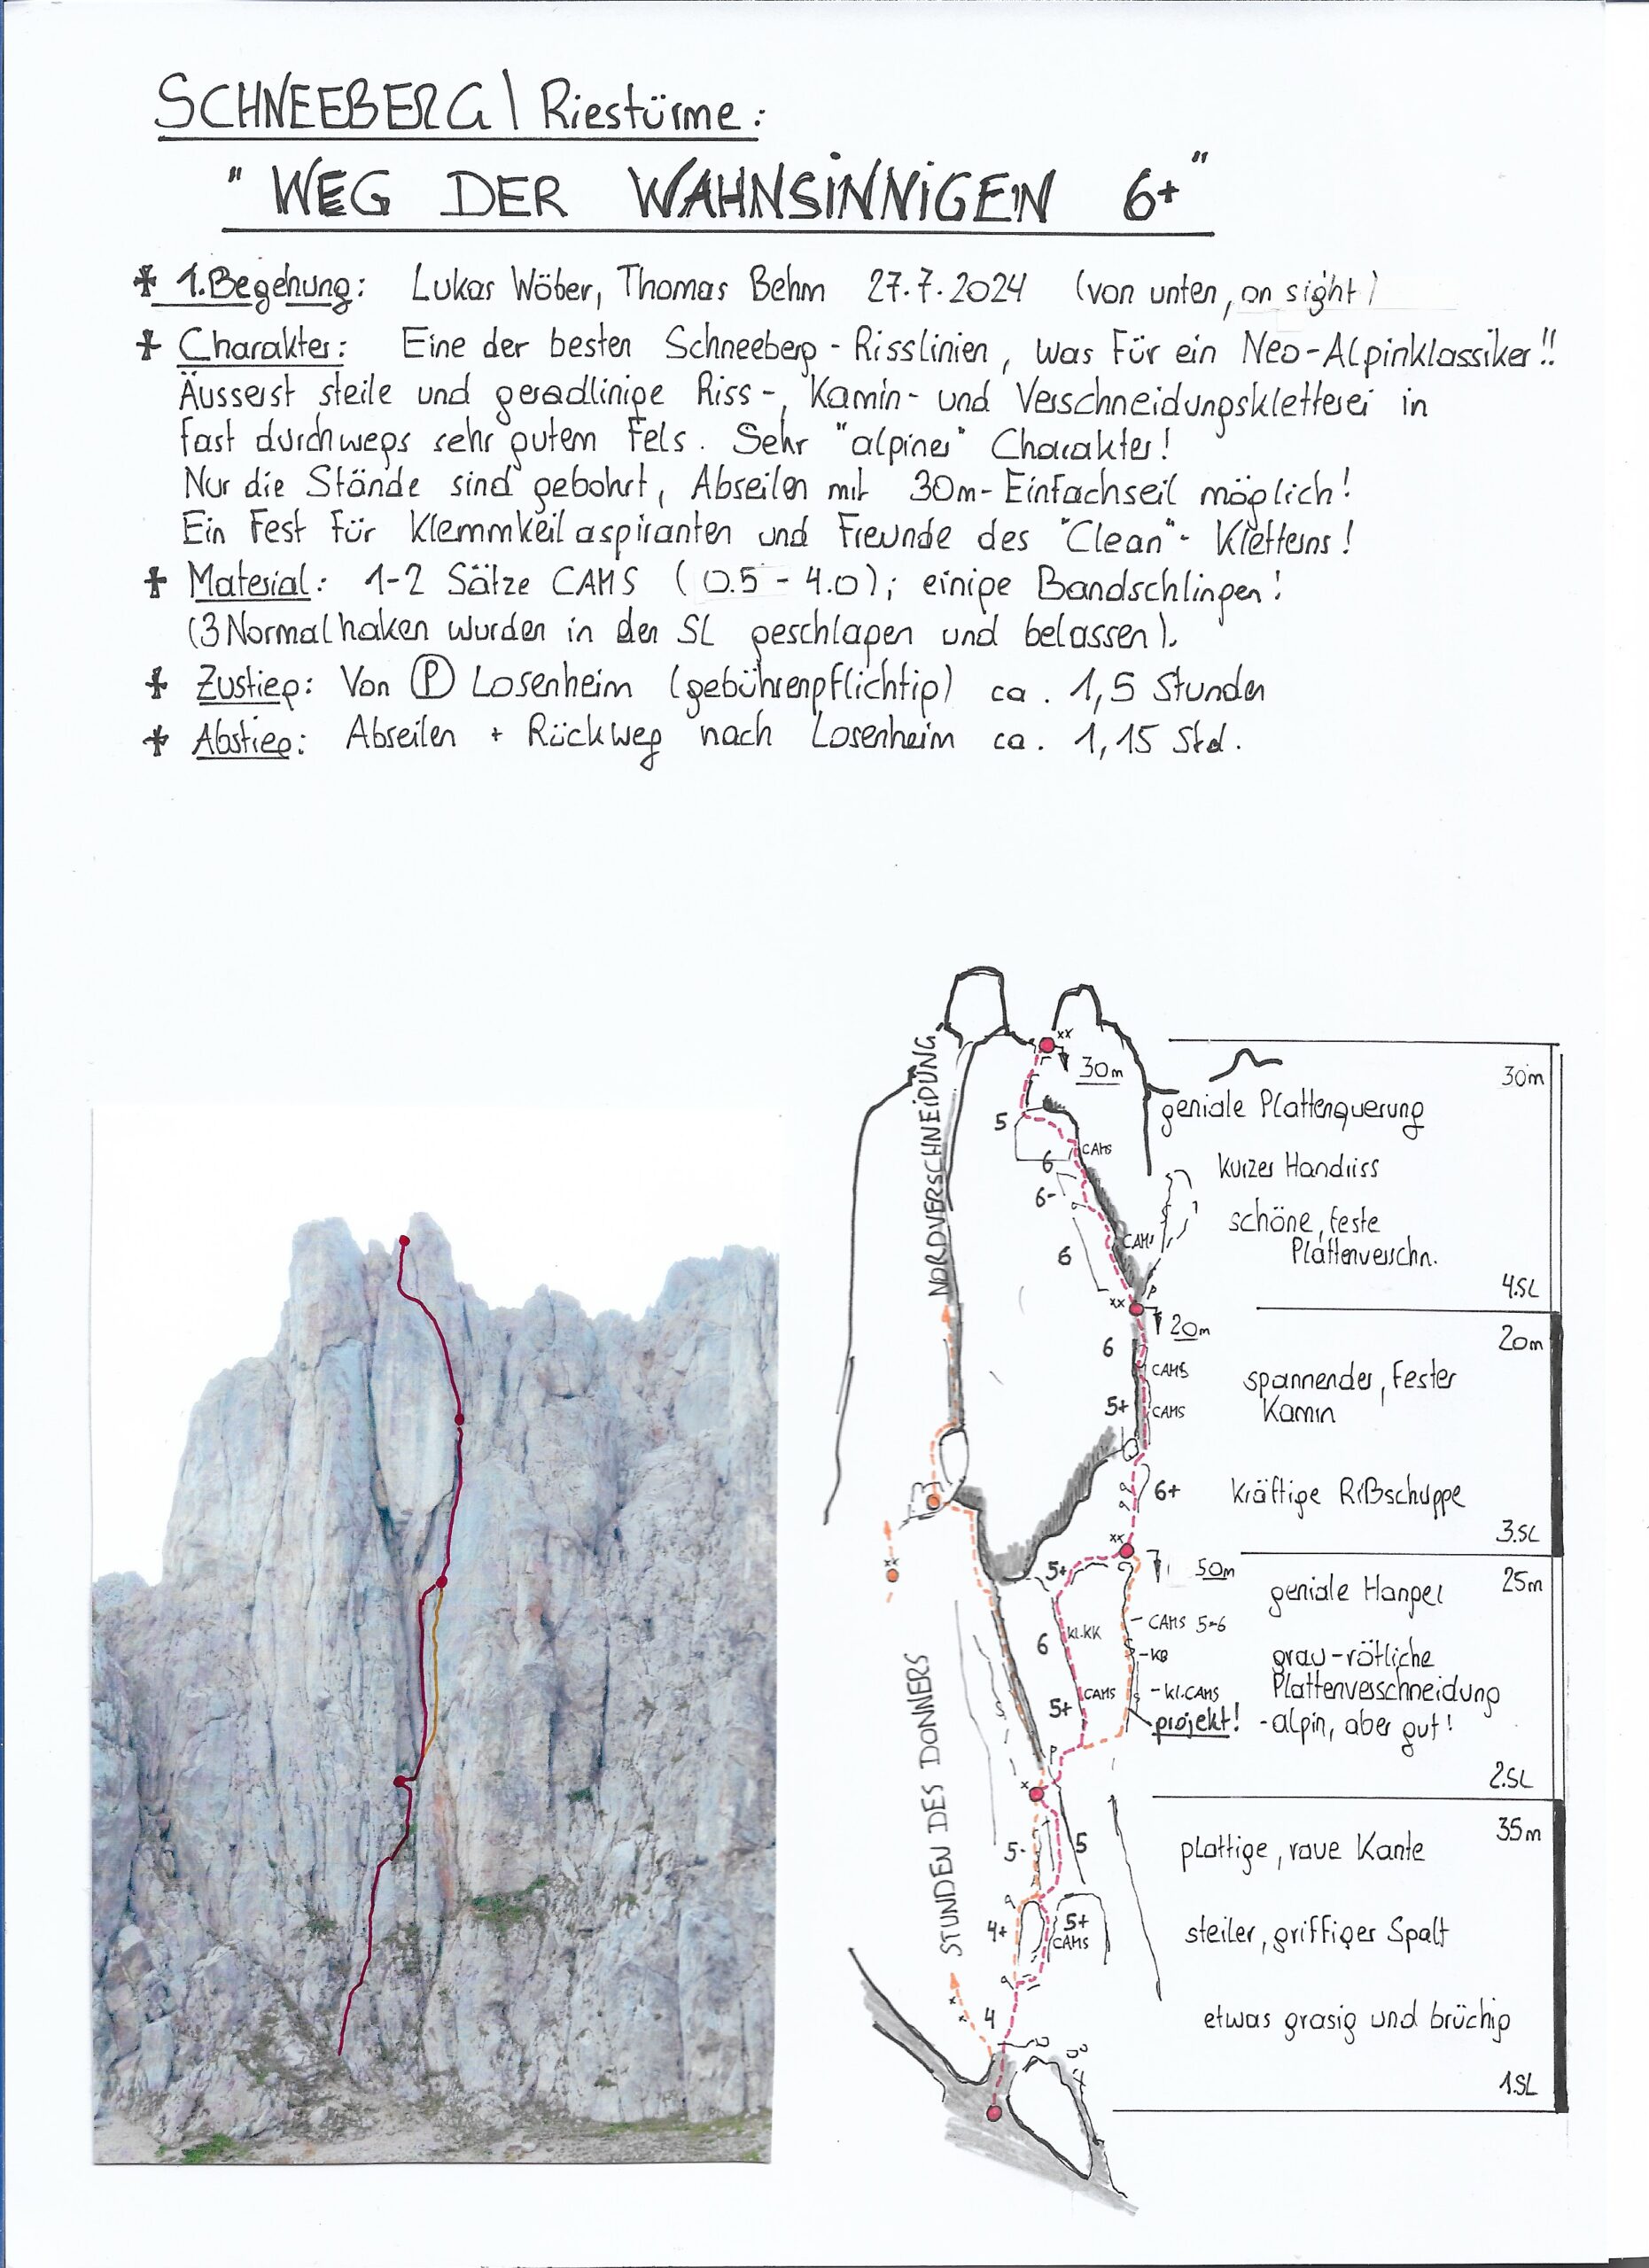 SCHNEEBERG | Riestürme:
"WEG DER WAHNSINNIGEN 6+"
1. Begehung: Lukas Wöber, Thomas Behm 27.7.2024 (von unten, on sight)
Charakter: Eine der besten Schneeberg-Risslinien, was für ein Neo-Alpinklassiker!!
Äusserst steile und geradlinige Riss-, Kamin- und Verschneidungskletterei in
fast durchwegs sehr gutem Fels. Sehr "alpiner" Charakter!
Nur die Stände sind gebohrt, Abseilen mit 30m-Einfachseil möglich!
Ein Fest für Klemmkeilaspiranten und Freunde des "Clean"-Kletterns!
Material: 1-2 Sätze CAMS (0.5 - 4.0); einige Bandschlingen!
(3 Normalhaken wurden in den SL geschlagen und belassen).
Zustieg: Von P Losenheim (gebührenpflichtig) ca. 1,5 Stunden
Abstieg: Abseilen + Rückweg nach Losenheim ca. 1,15 Std.
xx
30m
30m
NORDVERSCHNEIDUNG
geniale Plattenquerung
5
CAMS
6
kurzer Handriss
6-
schöne, feste
Plattenverschn.
CAMS
6
4.SL
xx
20m
20m
6
CAMS
spannender, fester
Kamin
5+
CAMS
6+
kräftige Rißschuppe
3.SL
xx
5+
50m
geniale Hangel
25m
CAMS 5-6
6
kl.KK
KB
grau-rötliche
Plattenverschneidung
CAMS
kl.CAMS
5+
projekt!
-alpin, aber gut!
P
2.SL
x
STUNDEN DES DONNERS
35m
5-
5
plattige, raue Kante
4+
5+
CAMS
steiler, griffiger Spalt
4
etwas grasig und brüchig
1.SL